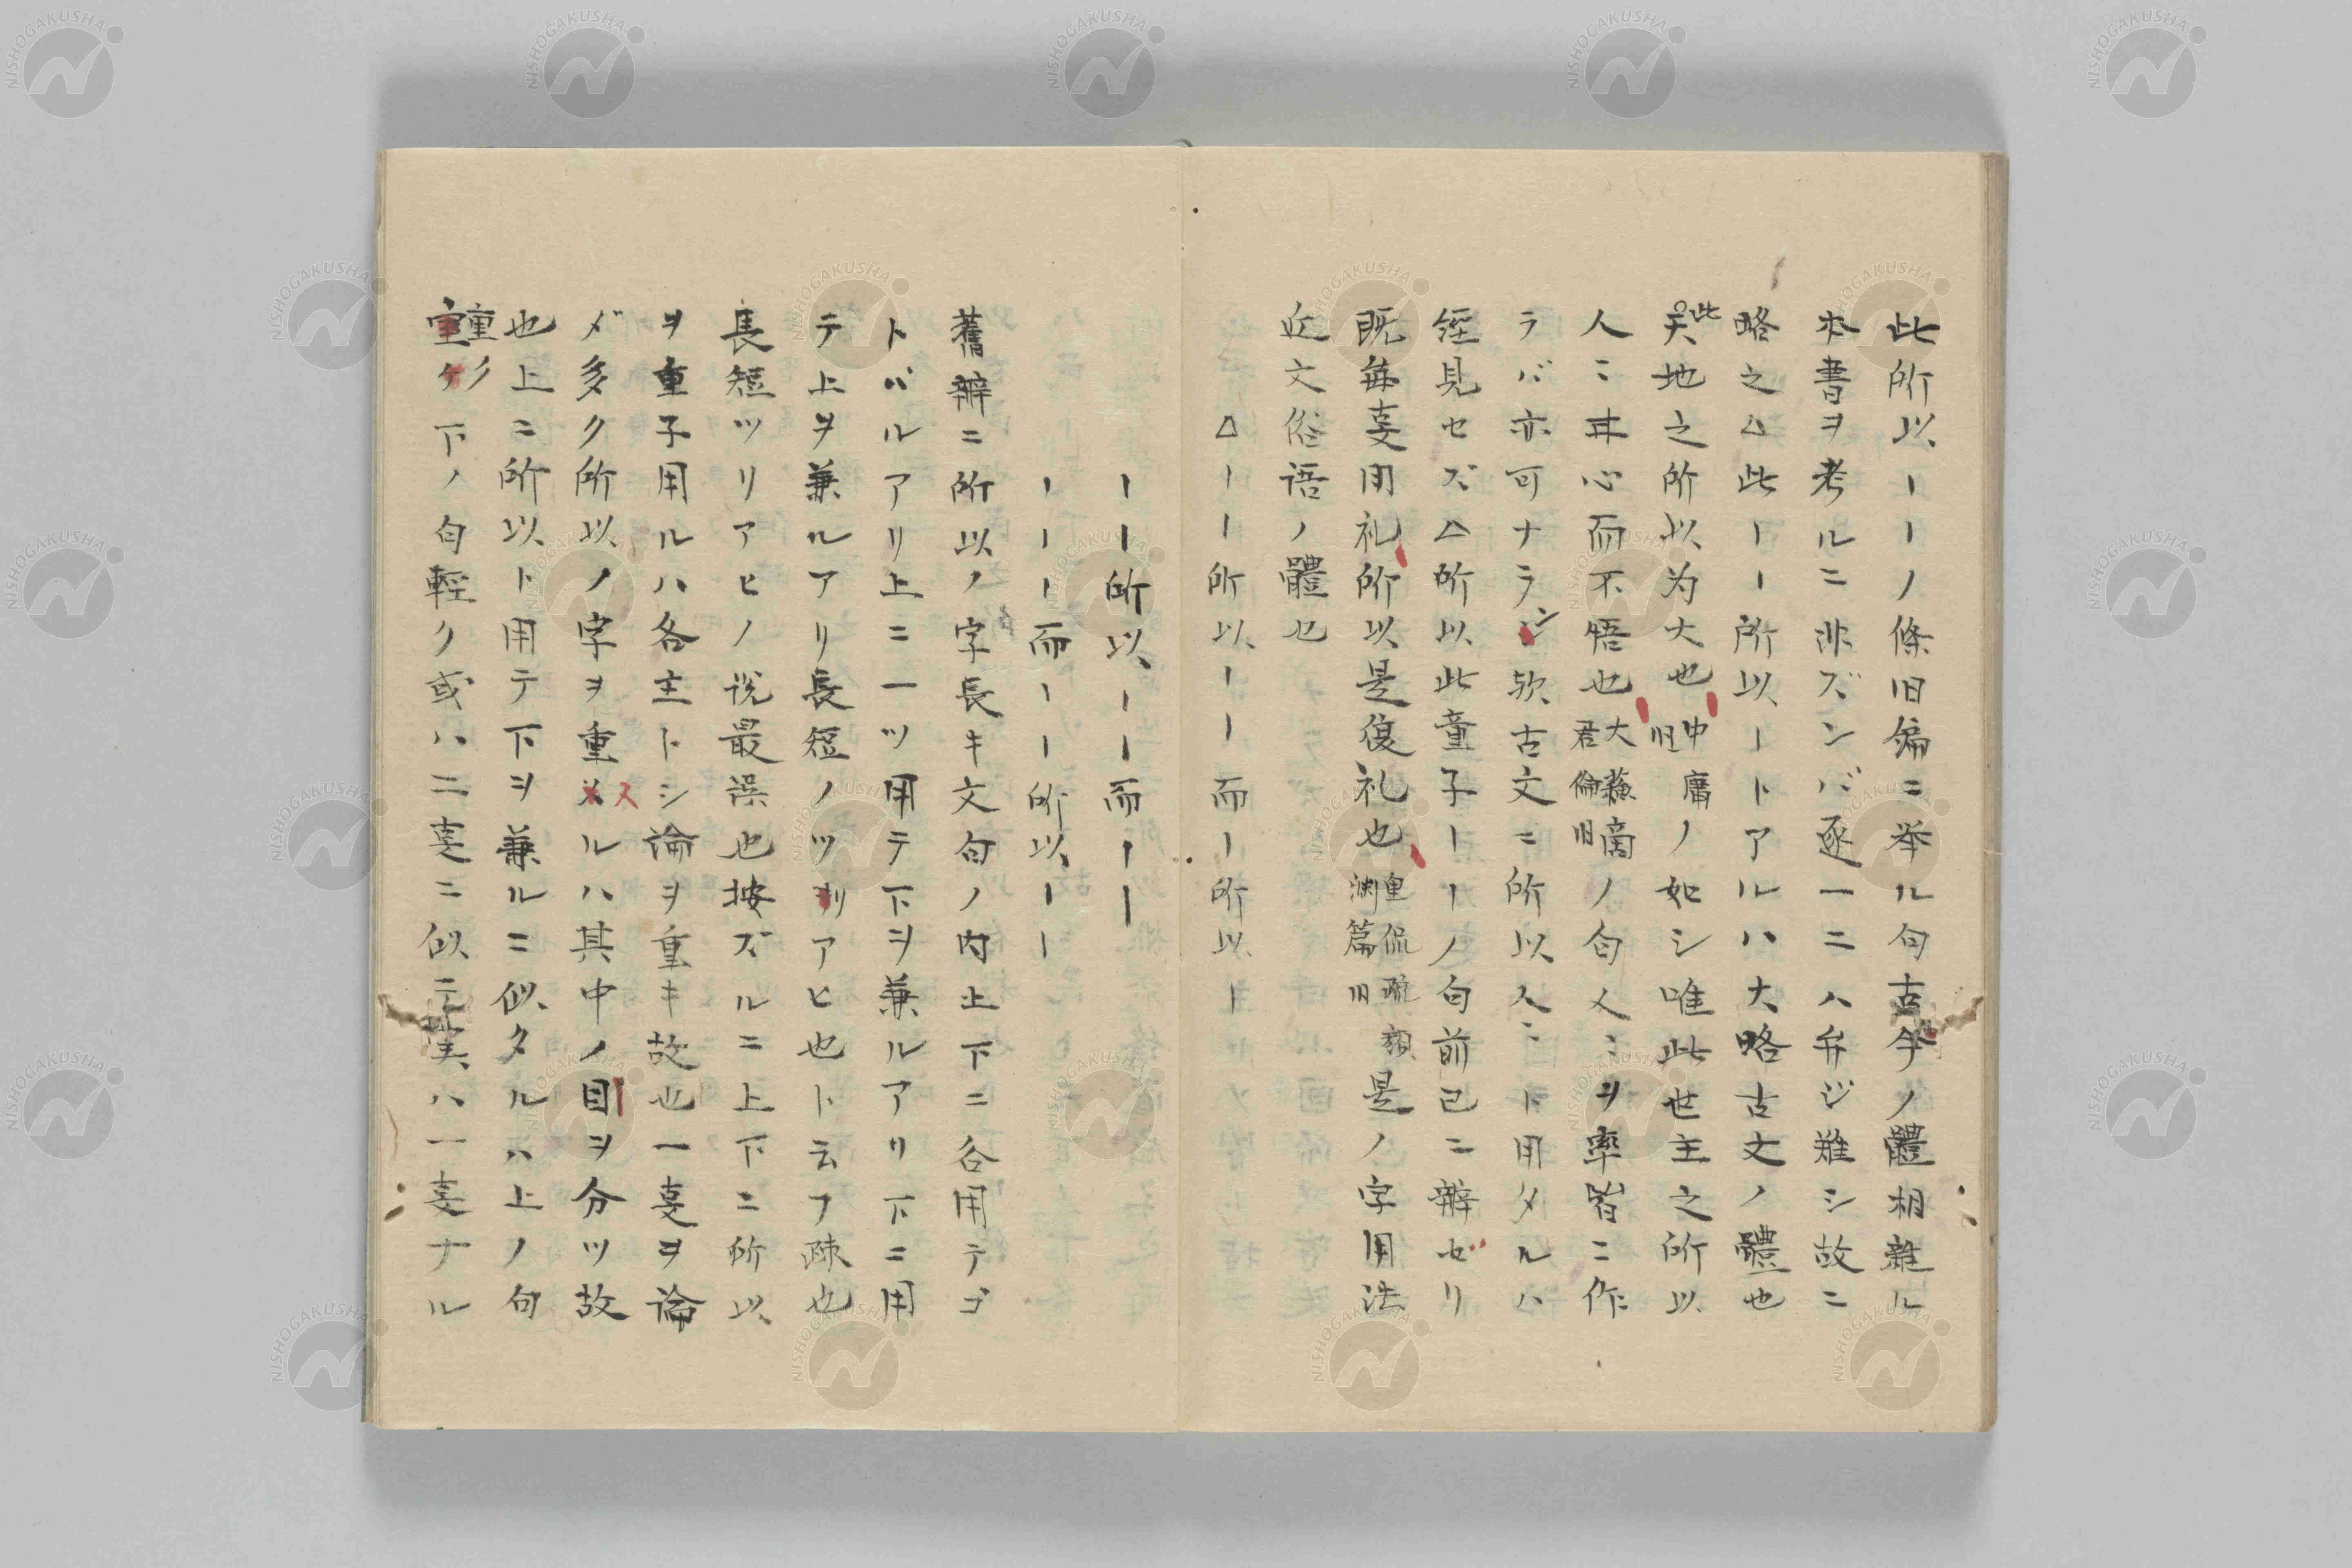 此所以ーーノ條旧偏ニ挙ル句古今ノ體相雜ル
本書ヲ考ルニ非ズンバ逐一ニハ弁ジ難シ故ニ
略之△此ーー所以ートアルハ大略古文ノ體也
此天地之所以为大也中庸旧ノ如シ唯此世主之所以
人ニ非心而不悟也大蘓君倫旧ノ句人ミヲ率皆ニ作
ラバ亦可ナラン欤古文ニ所以人ミト用タルハ
經見セズ△所以此童子ーーノ句前已ニ辨ゼリ
既毎事用礼所以是復礼也皇侃疏顔渊篇旧是ノ字用法
近文俗语ノ體也
△ーー所以ーー而ー所以ー
ーー所以ーー而ーー
ーーー而ーー所以ーー
舊辨ニ所以ノ字長キ文句ノ内上下ニ各用テゴ
トバルアリ上ニ一ツ用テ下ヲ兼ルアリ下ニ用
テ上ヲ兼ルアリ長短ノツリアヒ也ト云フ疎也
長短ツリアヒノ说最誤也按ズルニ上下ニ所以
ヲ重子用ルハ各主トシ論ヲ重キ故也一事ヲ論
メ多ク所以ノ字ヲ重スルハ其中ノ目ヲ分ツ故
也上ニ所以ト用テ下ヲ兼ルニ似タルハ上ノ句
重ク下ノ句輕ク或ハ二事ニ似テ実ハ一事ナル
NISHOGAKUSHA